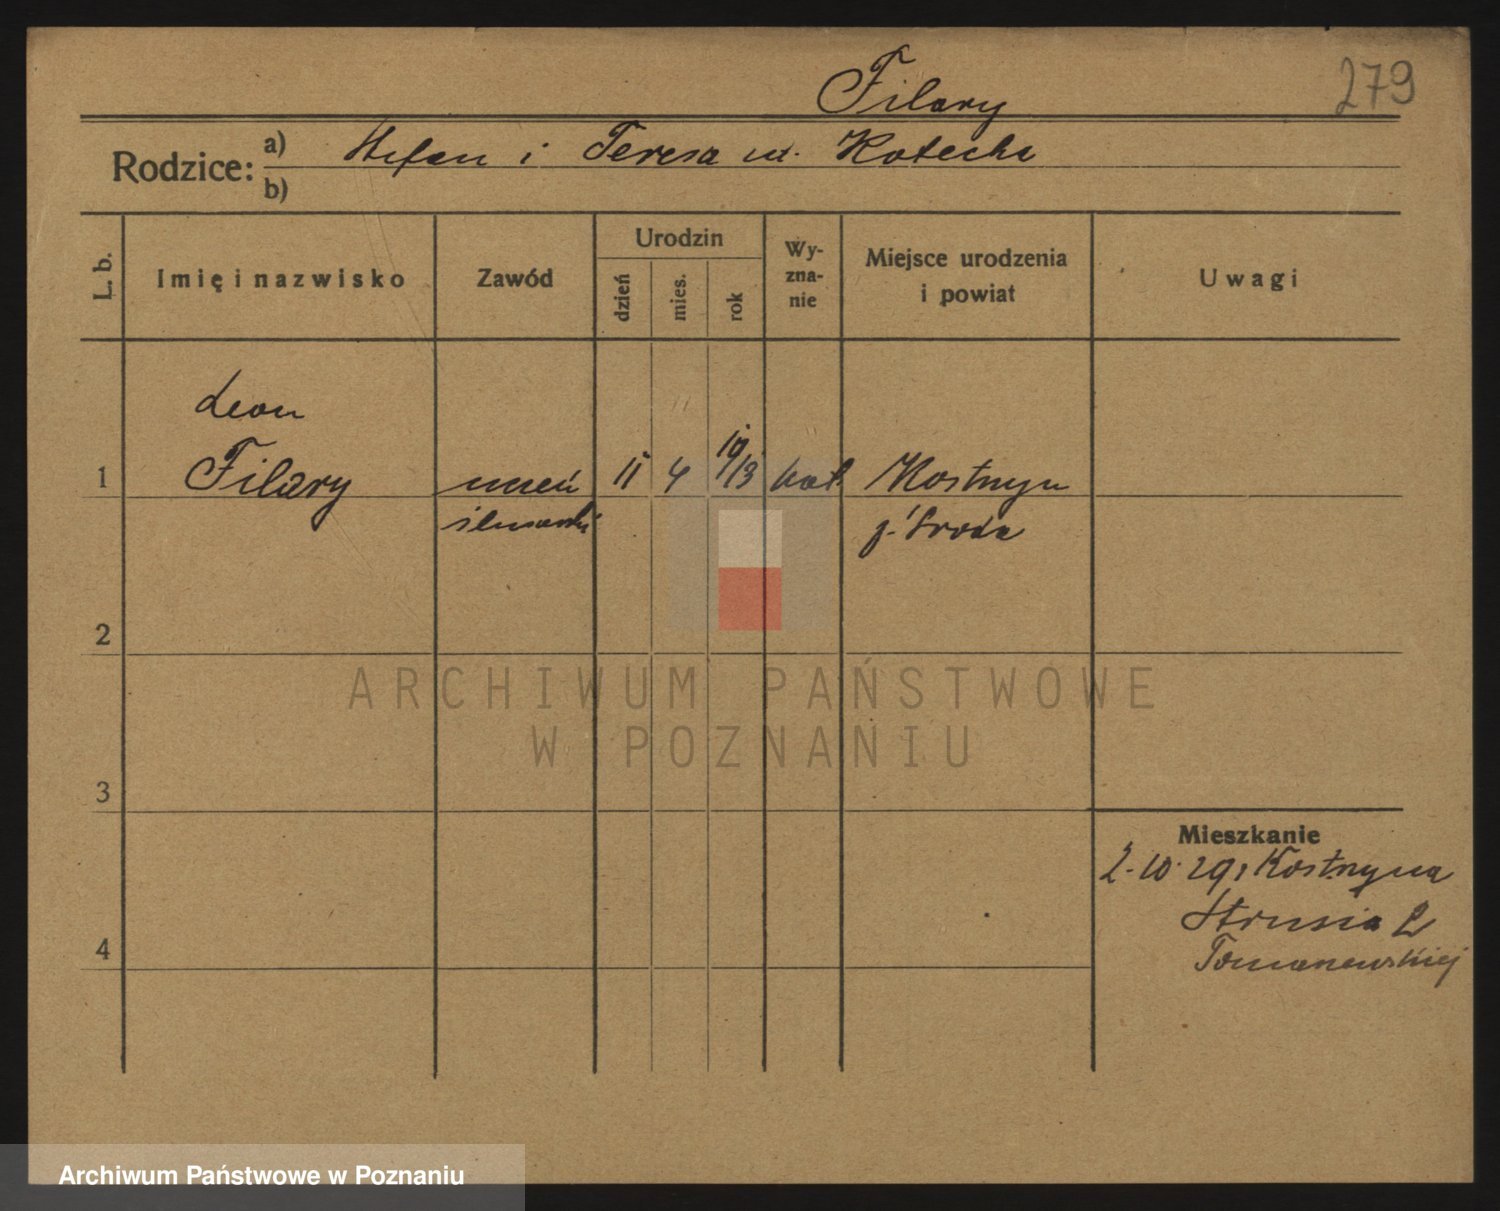 Filary
279
Rodzice:
a) Stefan i Teresa ur. Kotecka
b)
L. b.
Imię i nazwisko
Zawód
Urodzin
dzień
mies.
rok
Wy-
zna-
nie
Miejsce urodzenia
i powiat
Uwagi
Leon
1 Filary uczeń 11 4 19/13 kat. Kostrzyn
ślusarski p. Środa
2
ARCHIWUM PAŃSTWOWE
W POZNANIU
3
Mieszkanie
2.10.29 Kostrzyna
Strusia 2
4 Tomanewskiej
Archiwum Państwowe w Poznaniu